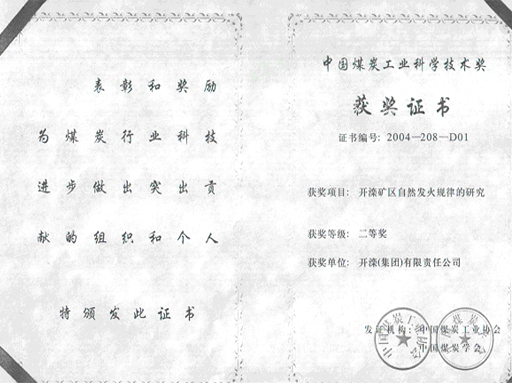 表彰和奖励
为煤炭行业科技
进步做出突出贡
献的组织和个人
特颁发此证书
中国煤炭工业科学技术奖
获奖证书
证书编号: 2004—208—D01
获奖项目: 开滦矿区自然发火规律的研究
获奖等级: 二等奖
获奖单位: 开滦(集团)有限责任公司
发证机构: 中国煤炭工业协会
中国煤炭学会